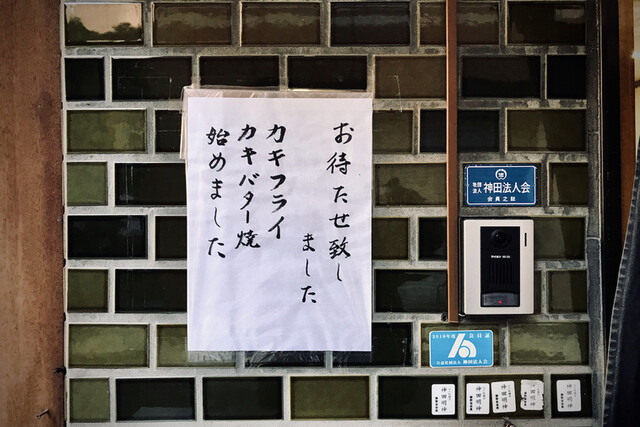 お待たせ致し
ました
カキフライ
カキバター焼
始めました
社団
法人
神田法人会
会員之証
2019年度 会員証
公益社団法人 神田法人会
神田明神
神田明神
神田明神
神田明神
神田明神